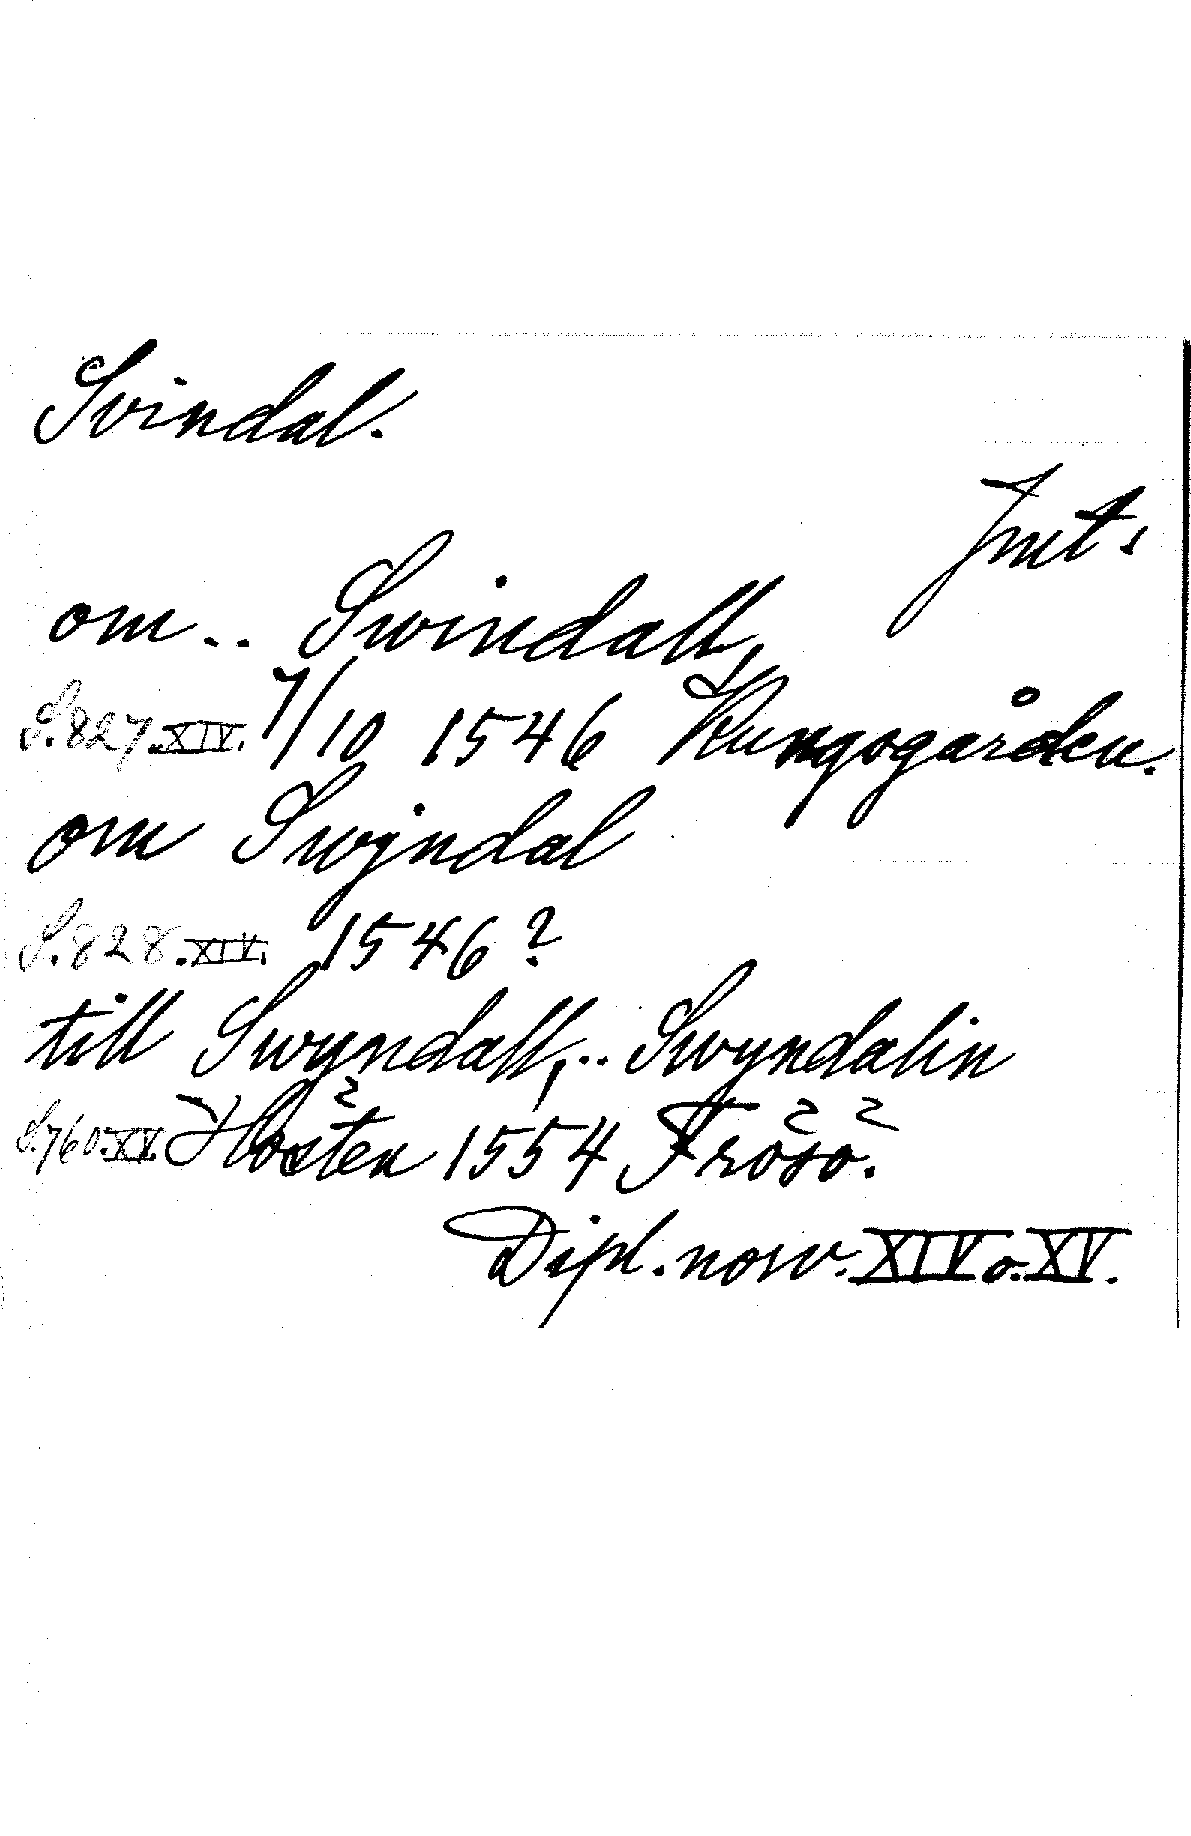 Svindal.
Jmt.
om.. Swindall,
S.827.XIV. 7/10 1546 Kungsgården.
om Swijndal
S.828.XIV. 1546?
till Swyndall,.. Swyndalin
S.760.XV. Hösten 1554 Frösö.
Dipl. norv. XIV o. XV.